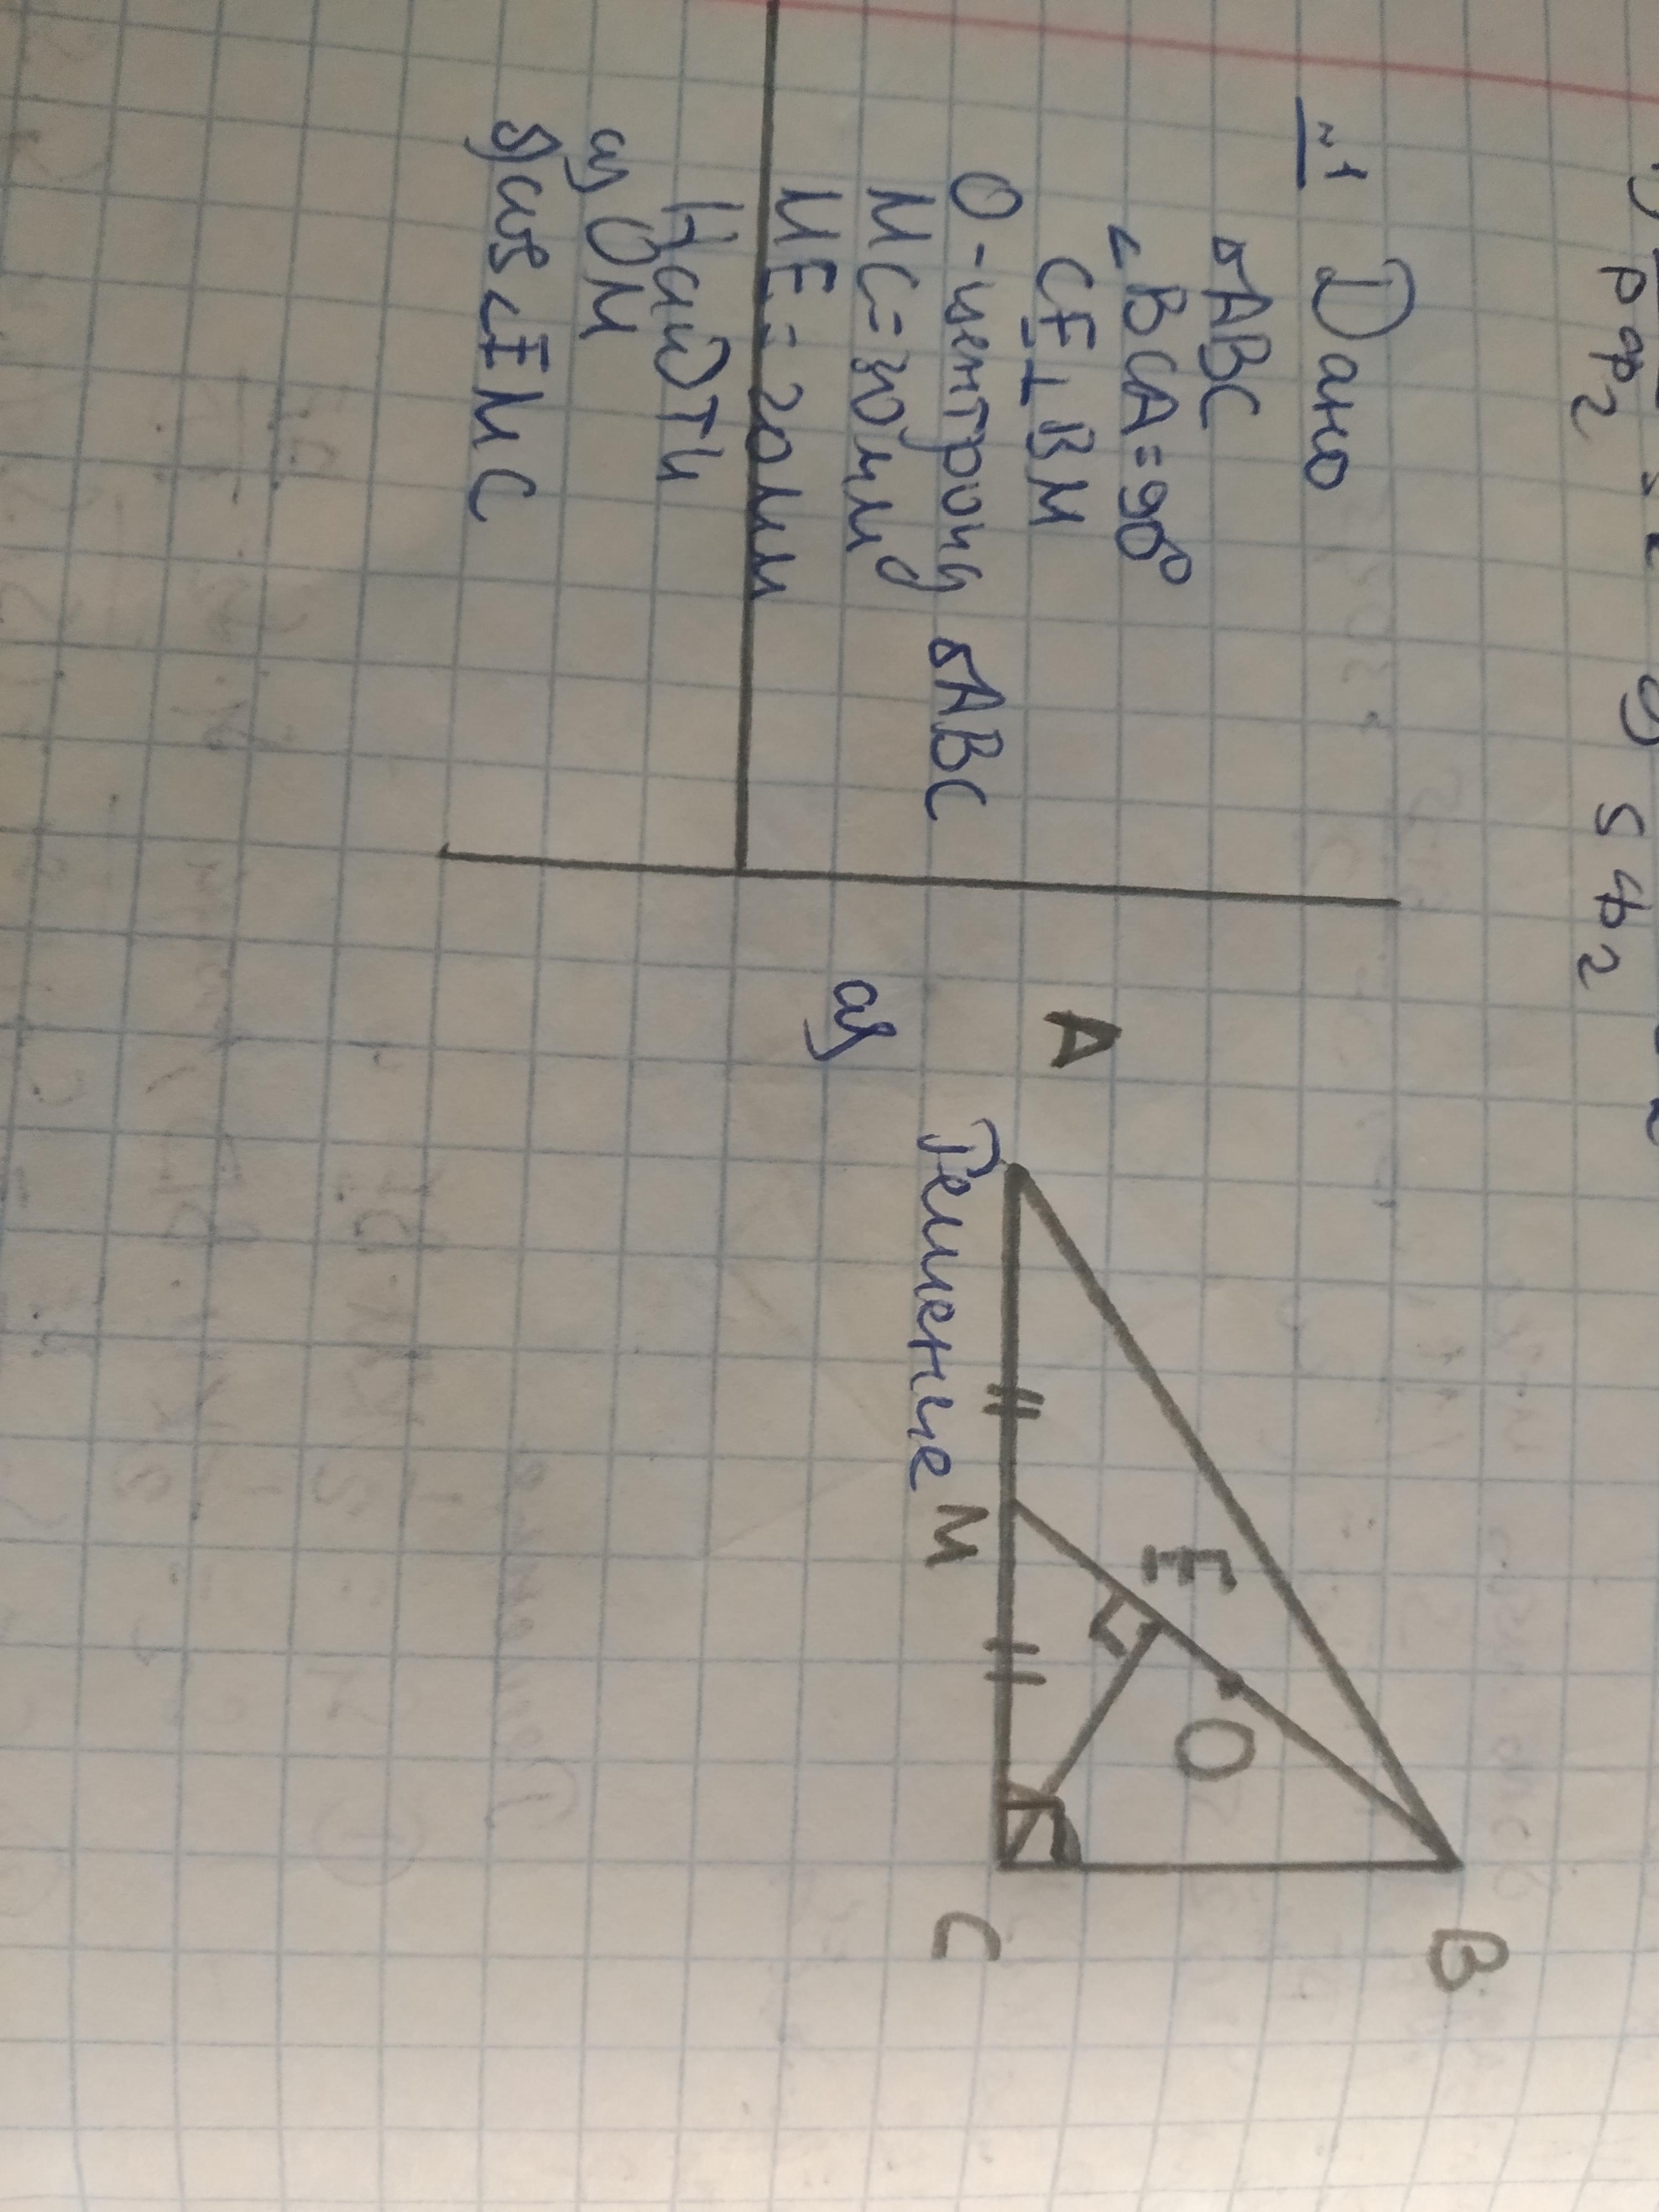 №1 Дано
△ABC
∠BCA=90°
CE⊥BM
O-центроид △ABC
MC=30мм
ME=20мм
Найти
а) OM
б) cos∠EMC
A
B
C
M
E
O
Решение
а)